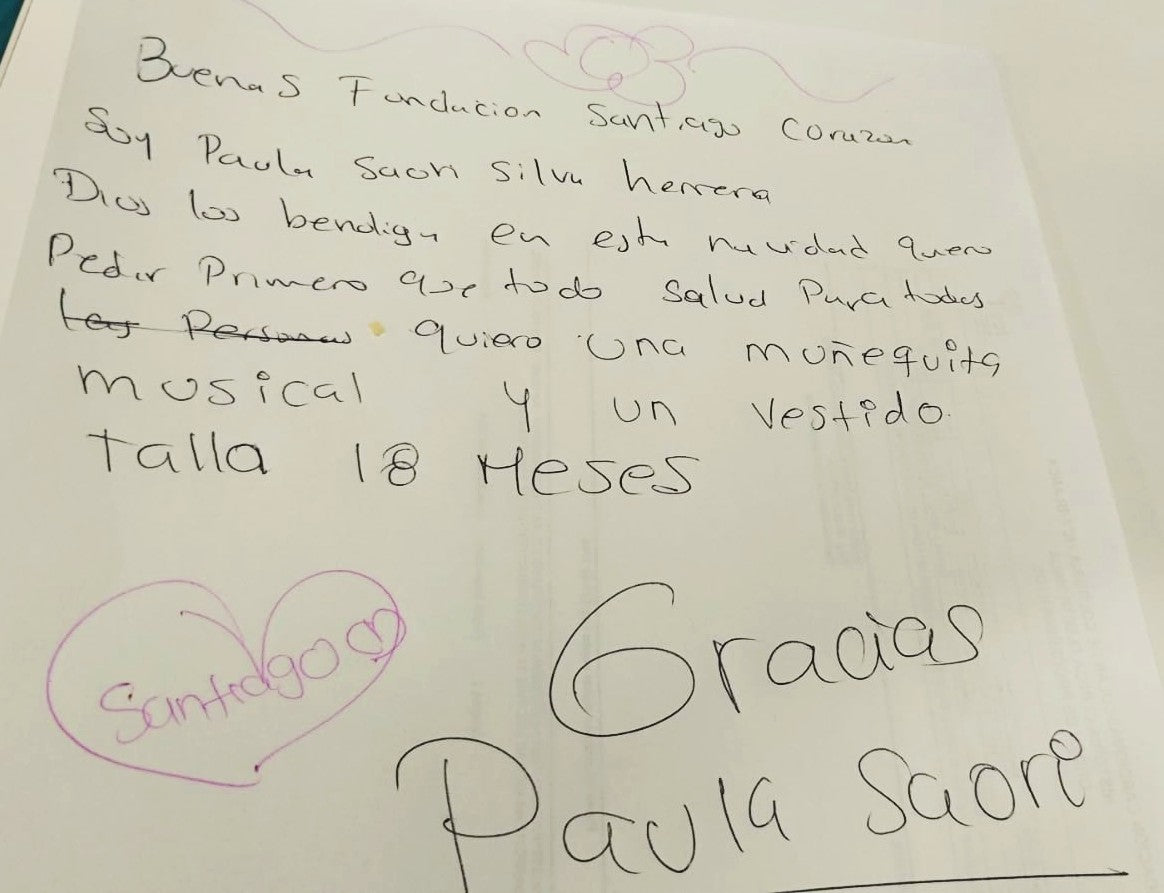 Buenas Fundacion Santiago Corazon
Soy Paula Saori Silva herrera
Dios los bendiga en esta navidad quero
Pedir Primero que todo salud Para todas
Las Personas quiero una muñequita
musical y un vestido.
talla 18 Meses
Santiago
Gracias
Paula Saori